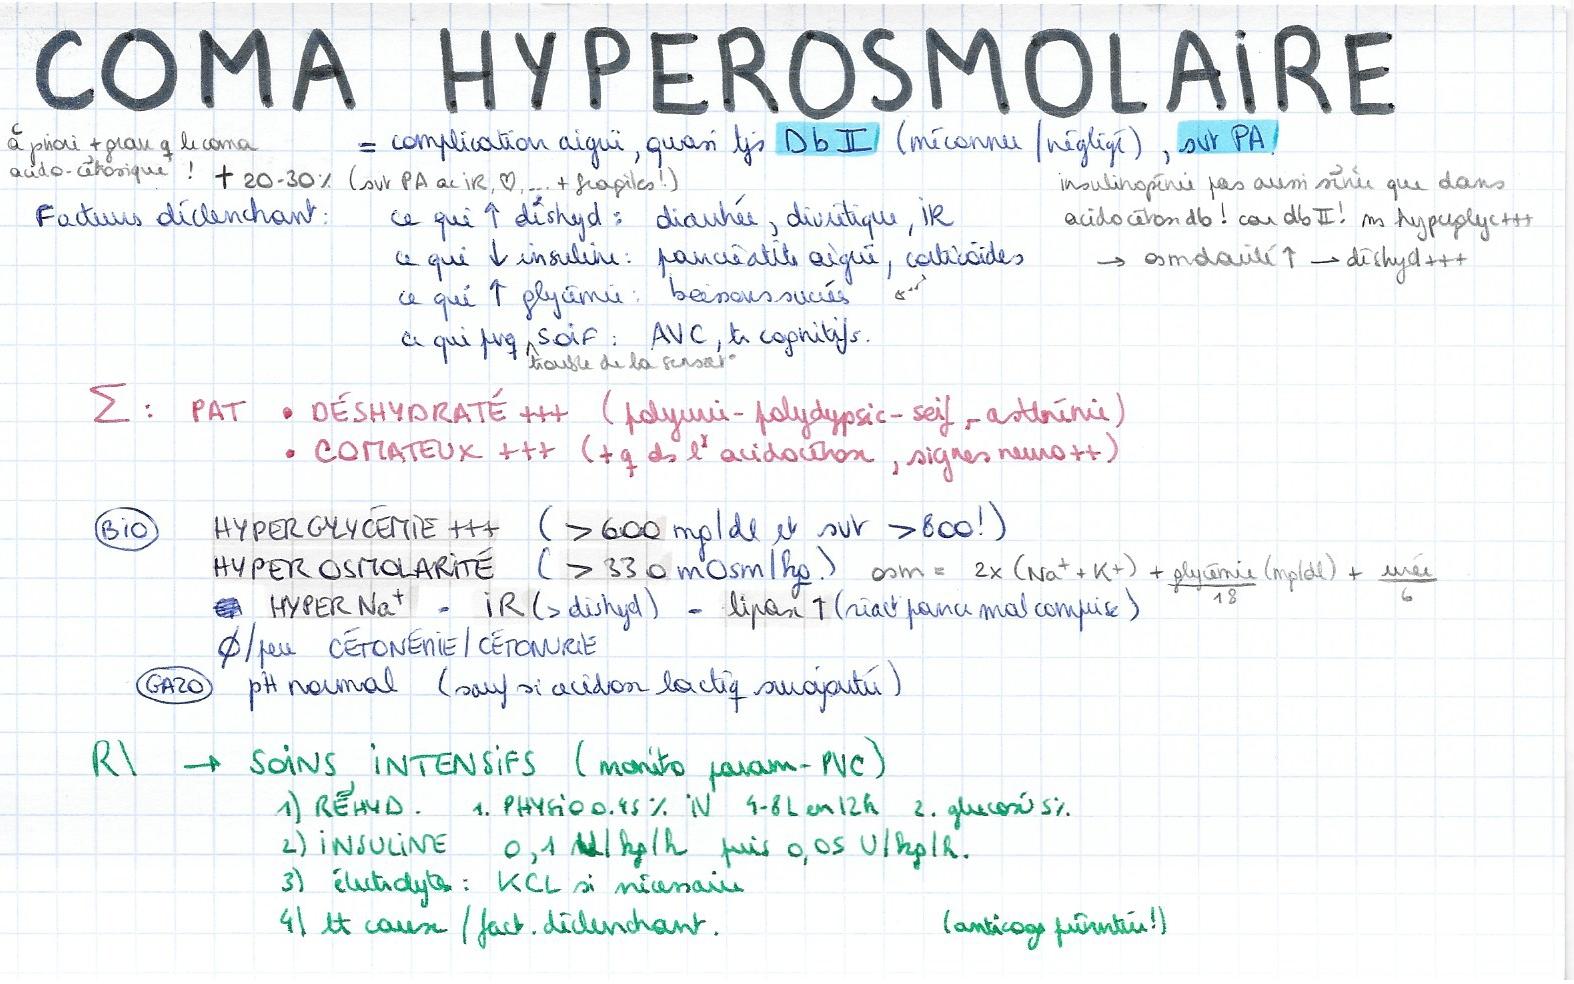 COMA HYPEROSMOLAIRE
à priori + grav q le coma acido-cétosique !
= complication aiguë, quasi tjs Db II (méconnu/négligé), surt PA!
† 20-30% (surt PA ac iR, ♡, ... + fragiles!)
insulinopénie pas aussi sévère que dans
acidocétose db! car db II! ms hyperglyc+++
→ osmolarité ↑ → déshyd+++
Facteurs déclenchant:
ce qui ↑ déshyd: diarrhée, diurétique, iR
ce qui ↓ insuline: pancréatite aiguë, corticoïdes
ce qui ↑ glycémie: boissons sucrés
ce qui prvq soif: AVC, tr cognitifs.
trouble de la sensat°
Σ: PAT • DÉSHYDRATÉ +++ (polyurie-polydypsie-soif-asthénie)
• COMATEUX +++ (+ q ds l' acidocétose, signes neuro++)
BIO HYPERGLYCÉMIE +++ (>600 mg/dl et surt >800!)
HYPEROSMOLARITÉ (>330 mOsm/kg) osm = 2x (Na+ + K+) + glycémie (mg/dl)/18 + urée/6
HYPER Na+ - iR (> déshyd) - lipase ↑ (réact° pancr mal comprise)
∅/peu CÉTONÉMIE/CÉTONURIE
GAZO pH normal (sauf si acidose lactiq surajoutée)
R\ → SOINS INTENSIFS (monito param-PVC)
1) RÉHYD. 1. PHYSIO 0.45% iV 4-8L en 12h 2. glucosé 5%.
2) INSULINE 0,1 U/kg/h puis 0,05 U/kg/h.
3) électrolyte: KCL si nécessaire
4) tt cause/fact. déclenchant. (anticoag préventive!)